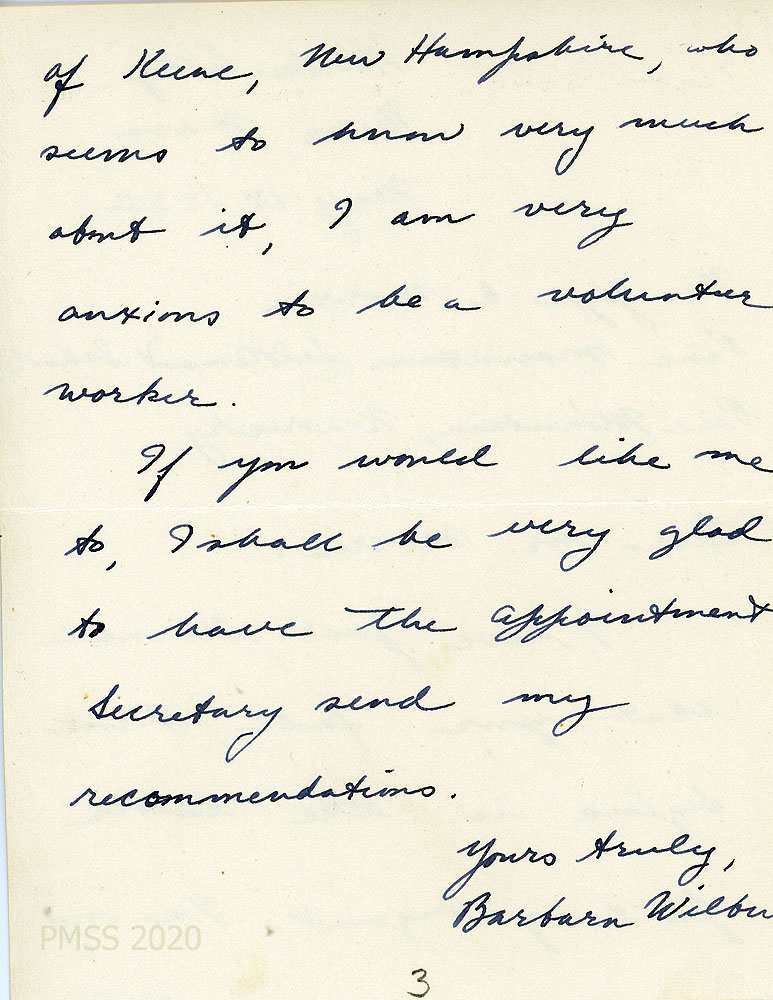 of Keene, New Hampshire, who
seems to know very much
about it, I am very
anxious to be a volunteer
worker.
If you would like me
to, I shall be very glad
to have the appointment
secretary send my
recommendations.
Yours truly,
Barbara Wilbu
PMSS 2020
3